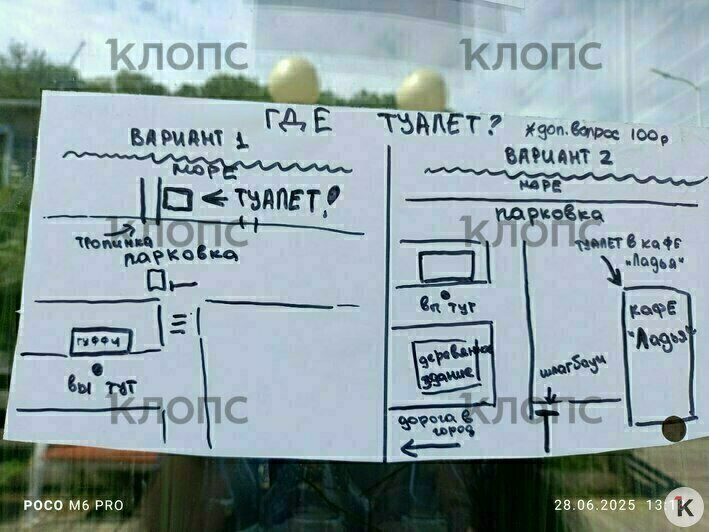 КЛОПС КЛОПС
ГДЕ ТУАЛЕТ?
*доп. вопрос 100р
ВАРИАНТ 1
МОРЕ
← ТУАЛЕТ!
ТРОПИНКА
ПАРКОВКА
ГУФФИ
ВЫ ТУТ
ВАРИАНТ 2
МОРЕ
ПАРКОВКА
ТУАЛЕТ В КАФЕ
"Ладья"
ВЫ ТУТ
КАФЕ
"Ладья"
деревянное
здание
шлагбаум
дорога в
город
КЛОПС КЛОПС
КЛОПС КЛОПС
POCO M6 PRO
28.06.2025 13:1
K